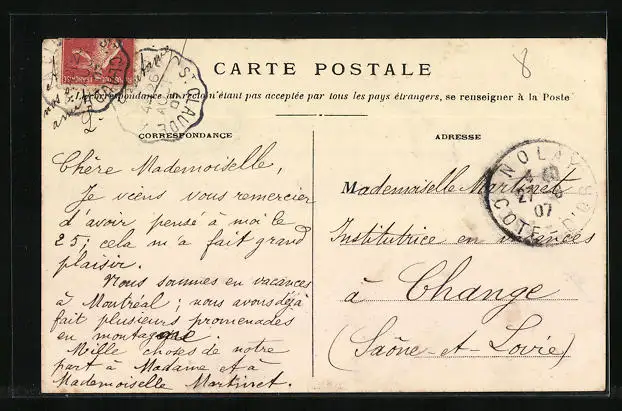 CARTE POSTALE
La correspondance au recto n'étant pas acceptée par tous les pays étrangers, se renseigner à la Poste
CORRESPONDANCE
Chère Mademoiselle,
Je viens vous remercier
d'avoir pensé à moi le
25; cela m'a fait grand
plaisir.
Nous sommes en vacances
à Montréal; nous avons déjà
fait plusieurs promenades
en montagne.
Mille choses de notre
part à Madame et à
Mademoiselle Martinet.
ADRESSE
Mademoiselle Martinet
Institutrice en vacances
à Change
(Saône-et-Loire)
8
ST CLAUDE
26
07
NOLAY
27
07
COTE-D'OR